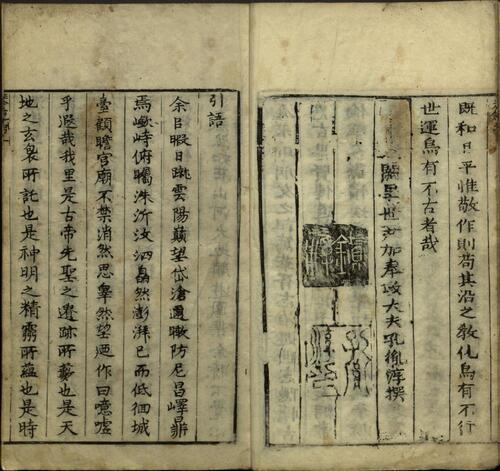 既和且平惟敬作則苟其沿之敎化烏有不行
世運烏有不古者哉
闕里世
加奉政大夫孔胤淳撰
引語
余㠯暇日眺雲陽巔望岱滄邊瞰防尼昌嶧鼎
焉巘峙俯矚洙沂汶泗淼然澎湃已而低徊城
臺顧瞻宮廟不禁消然思皋然望迺作曰噫嘘
乎遐哉我里是古帝先聖之遺跡所
也是天
地之玄袠所託也是神明之精靈所蘊也是時